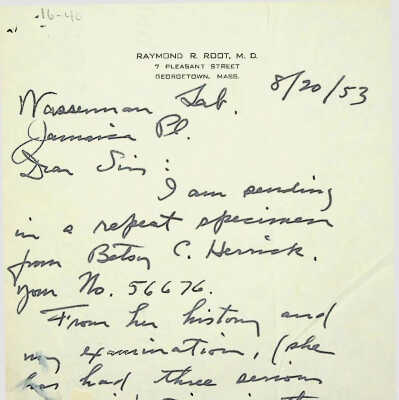 16-40
RAYMOND R. ROOT, M. D.
7 PLEASANT STREET
GEORGETOWN, MASS.
8/20/53
Wasserman Lab.
Jamaica Pl.
Dear Sirs:
I am sending
in a repeat specimen
from Betsy C. Herrick.
Your No. 56676.
From her history and
my examination, (she
has had three serious